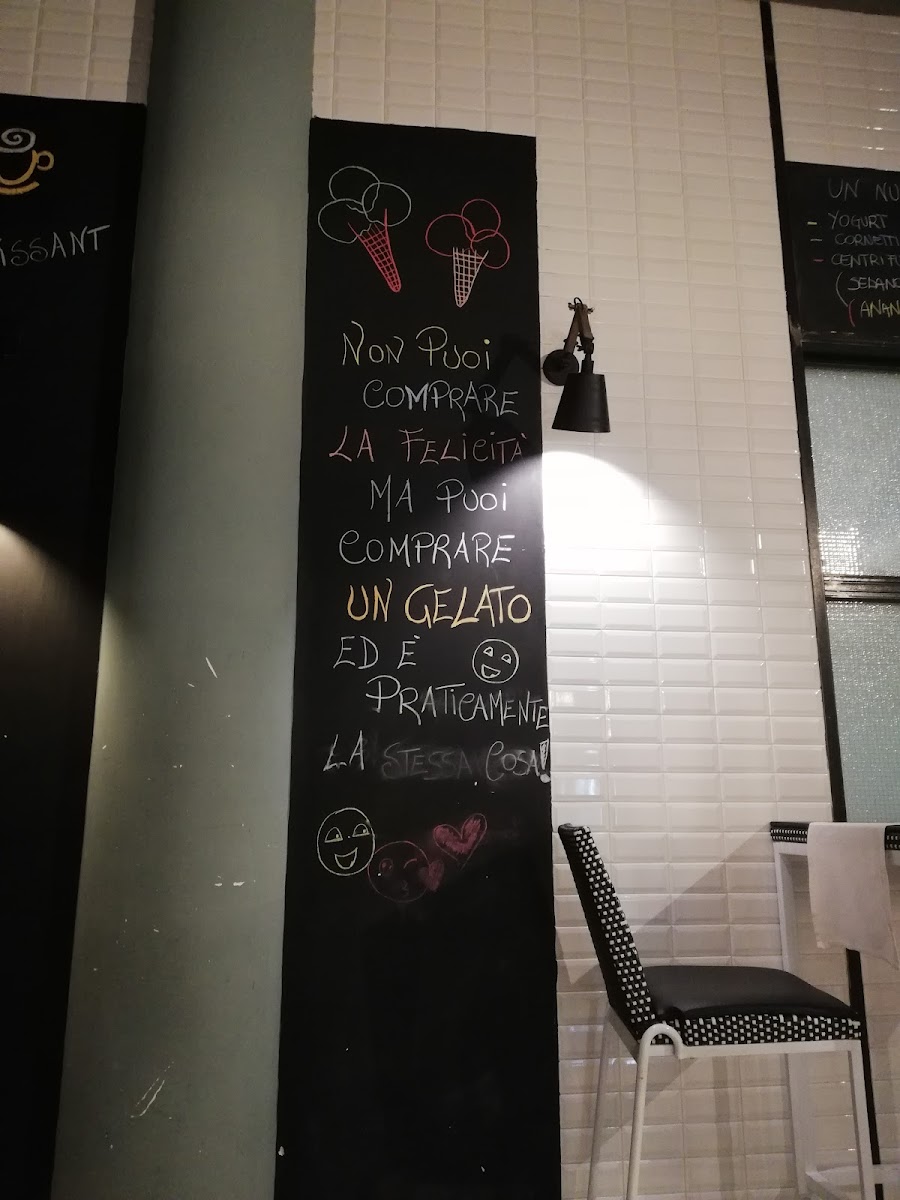 ISSANT
NON PUOI
COMPRARE
LA FELICITÀ
MA PUOI
COMPRARE
UN GELATO
ED È
PRATICAMENTE
LA STESSA COSA!
UN NU
- YOGURT
- CORNETTI
- CENTRIFU
(SEDANO
(ANAN